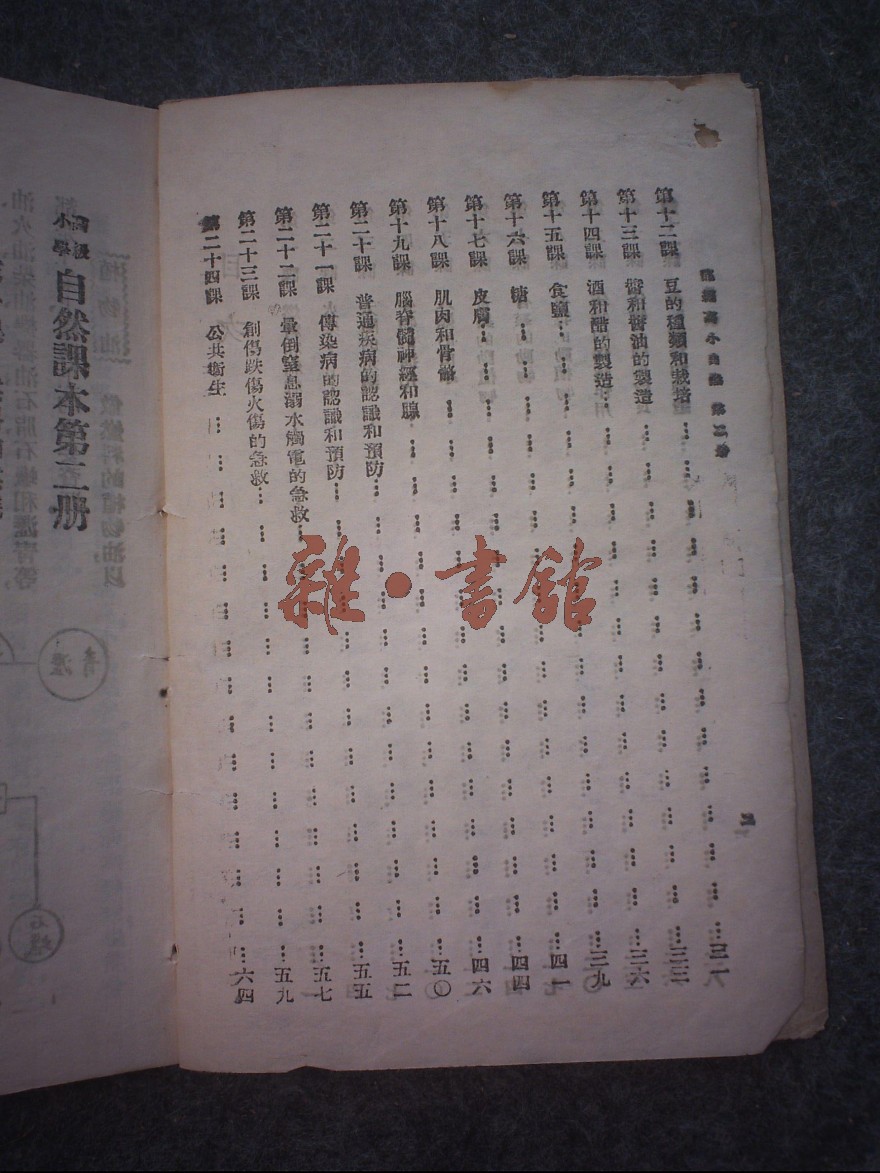 第十二課 豆的種類和栽培……三一
第十三課 醬和醬油的製造……三三
第十四課 酒和醋的製造……三六
第十五課 食鹽……三九
第十六課 糖……四一
第十七課 皮膚……四四
第十八課 肌肉和骨骼……四六
第十九課 腦脊髓神經和腺……五〇
第二十課 普通疾病的認識和預防……五二
第二十一課 傳染病的認識和預防……五五
第二十二課 暈倒窒息溺水觸電的急救……五七
第二十三課 創傷跌傷火傷的急救……五九
第二十四課 公共衞生……六四
自然課本第 册
雜·書館